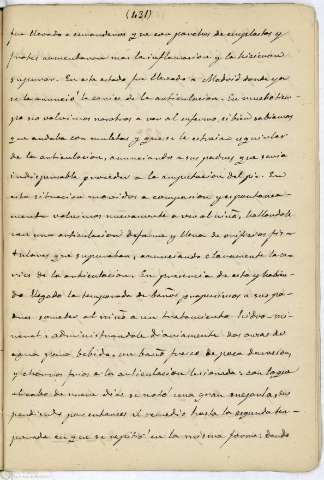 (431)
fue llevado a curanderos que con parches de emplastos y
frotes aumentaron mas la inflamacion y la hicieron
supurar. En este estado fue llevado a Madrid donde ya
se le anunció la caries de la articulacion. En mucho tiem-
po no volvimos nosotros a ver al enfermo, si bien sabiamos
que andaba con muletas y que se le estraia esquirlas
de la articulacion, anunciando a sus padres que seria
indispensable proceder a la amputacion del pie. En
esta situacion movidos a compasion y espontanea-
mente volvimos nuevamente a ver al niño, hallandole
con una articulacion disforme y llena de orificios fis-
tulosos que supuraban, anunciando claramente la ca-
ries de la articulacion. En presencia de esto y habien-
do llegado la temporada de baños propusimos a sus pa-
dres someter al niño a un tratamiento hidro-mi-
neral: administrandole diariamente dos onzas de
agua para bebida, un baño fresco de poca duracion,
y chorros frios a la articulacion lisiada: con lo que
al cabo de nueve dias se notó una gran mejoria, sus-
pendiendo por entonces el remedio hasta la segunda tem-
porada en que se repitió en la misma forma: dando